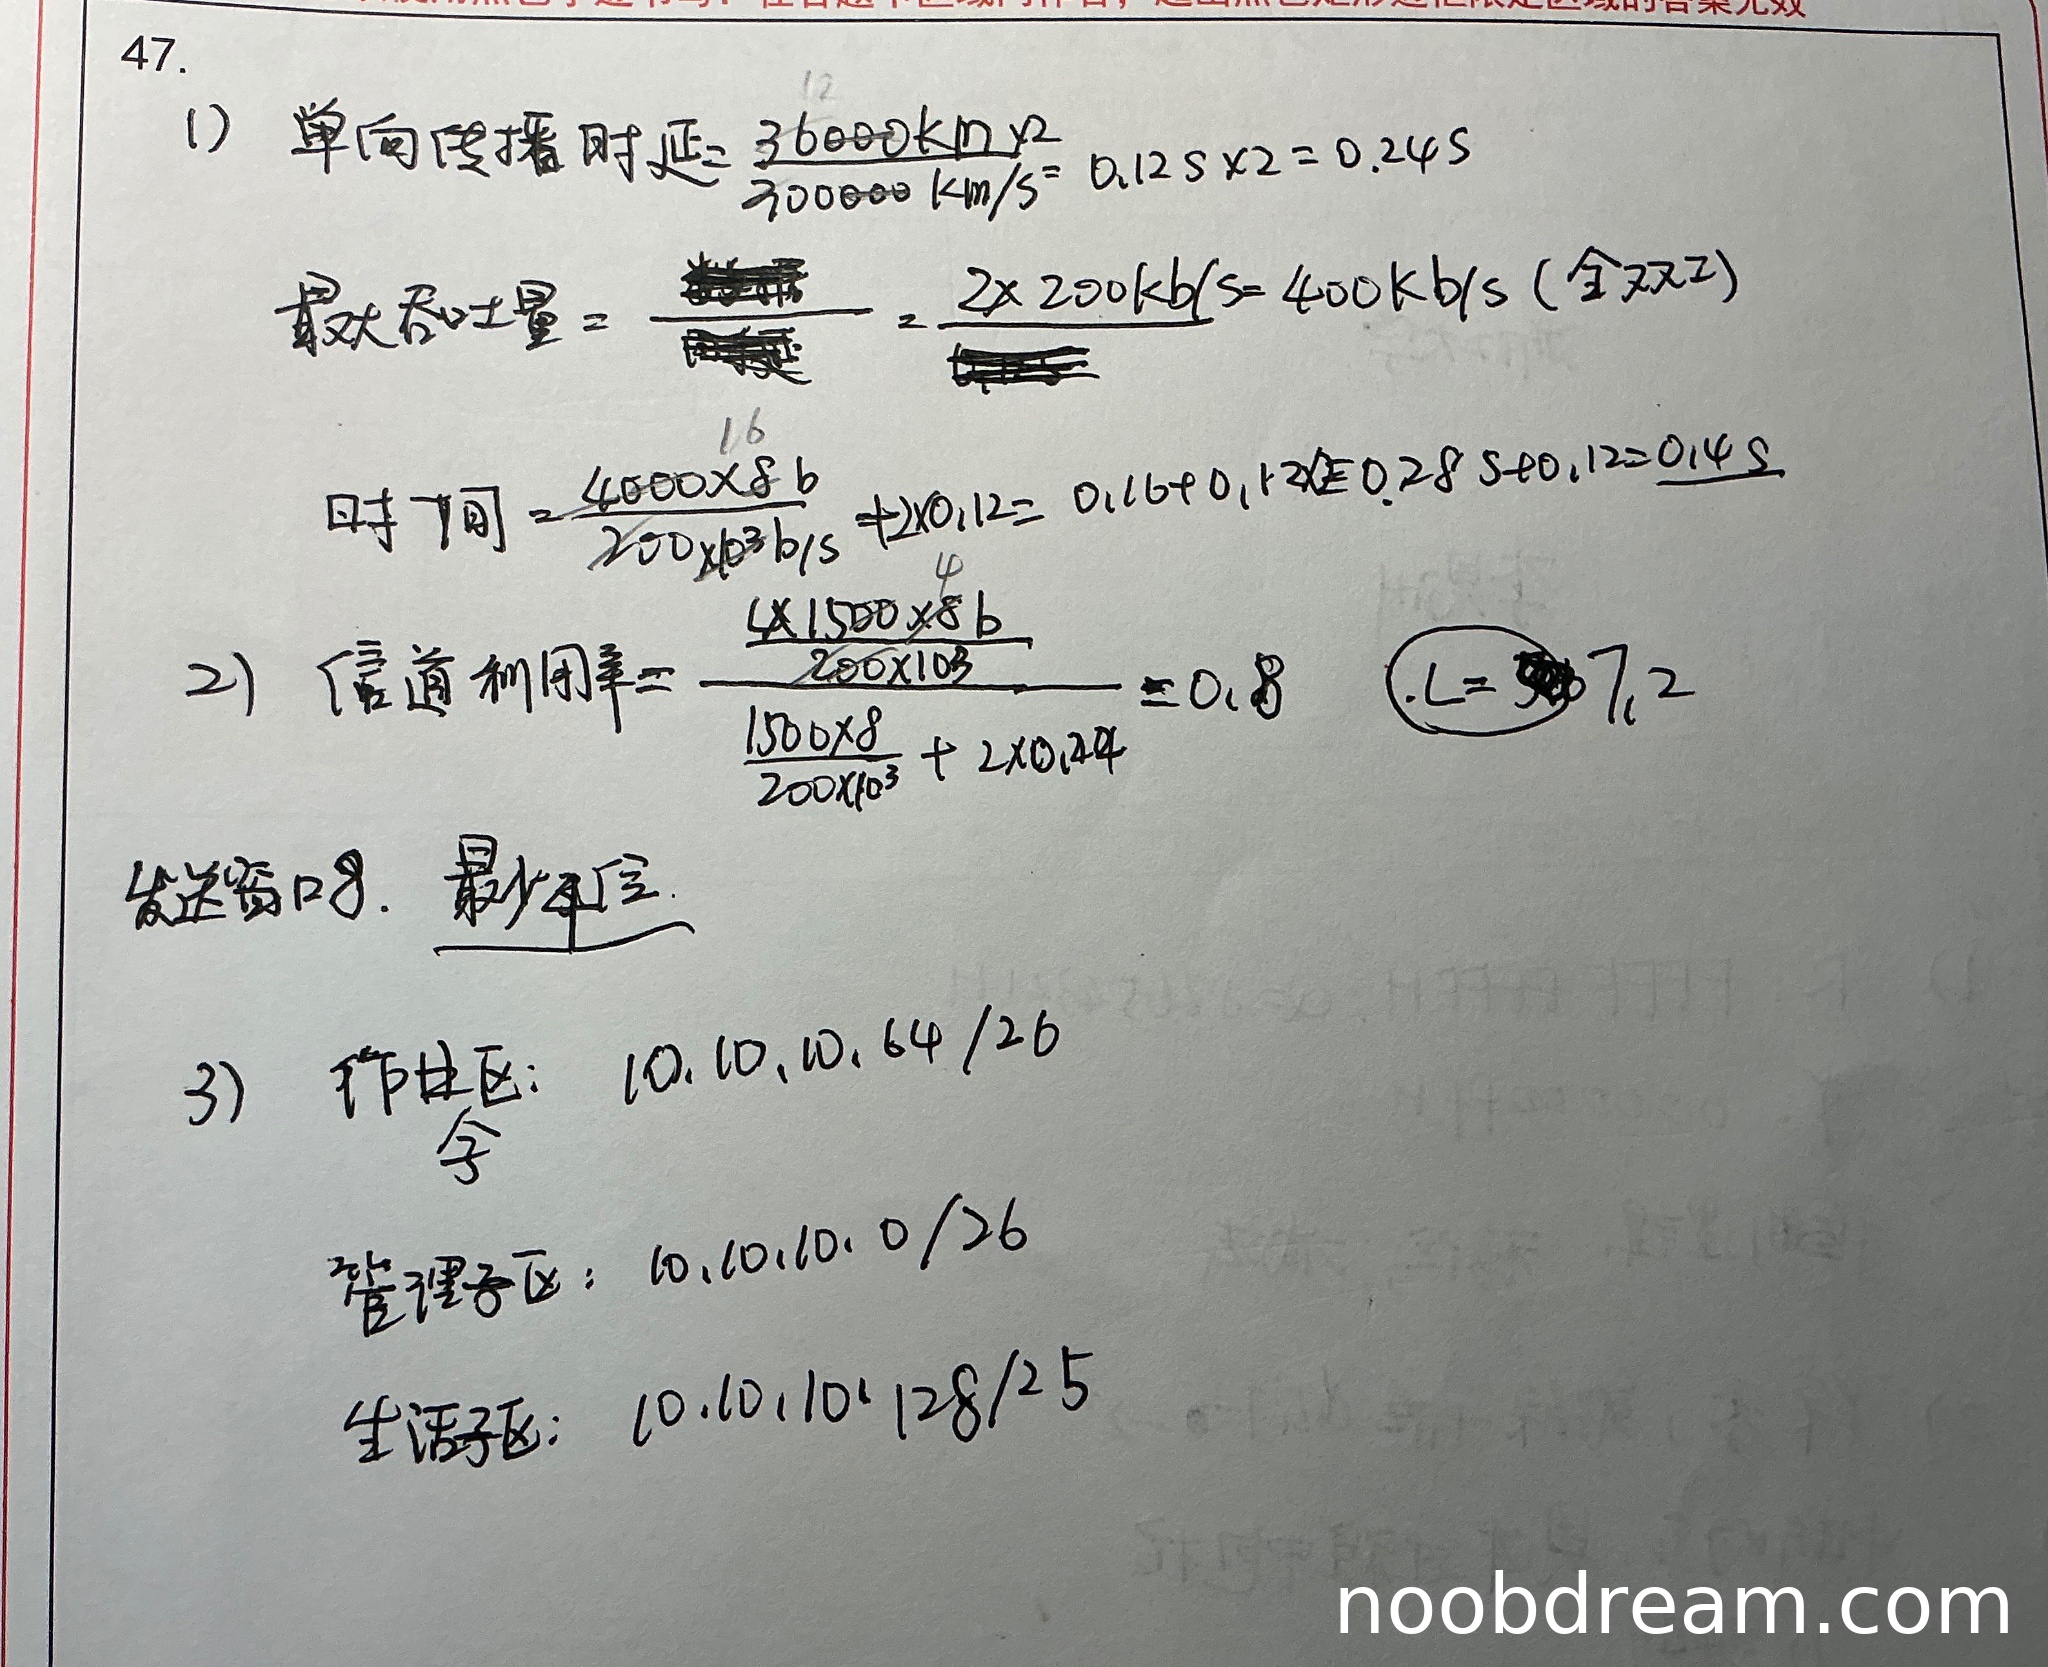 47.
1) 单向传播时延= 36000km×2 / 300000 km/s = 0.12s×2=0.24s
12
最大吞吐量= = 2×200kb/s=400Kb/s (全双工)
16
时间= 4000×8b / 200×10³b/s +2×0.12= 0.16+0.12 =0.28s+0.12=0.4s
4
2) 信道利用率= L×1500×8b / 200×10³ / 1500×8 / 200×10³ + 2×0.24 =0.8 L= 7.2
发送窗口8. 最少4位.
3) 作业区: 10.10.10.64/26
子
管理子区: 10.10.10.0/26
生活子区: 10.10.10.128/25
noobdream.com